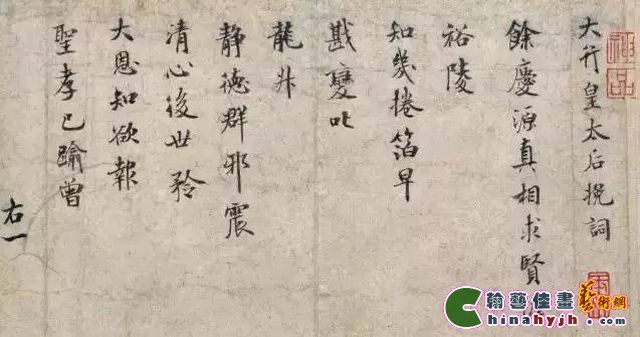 大行皇太后挽詞
餘慶源真相求賢
裕陵
知幾捲箔早
戡變叱
龍升
静德群邪震
清心後世矜
大恩知欲報
聖孝已踰曾
右一
神品
翰藝佳畫藝術網
Chinahyjh.com